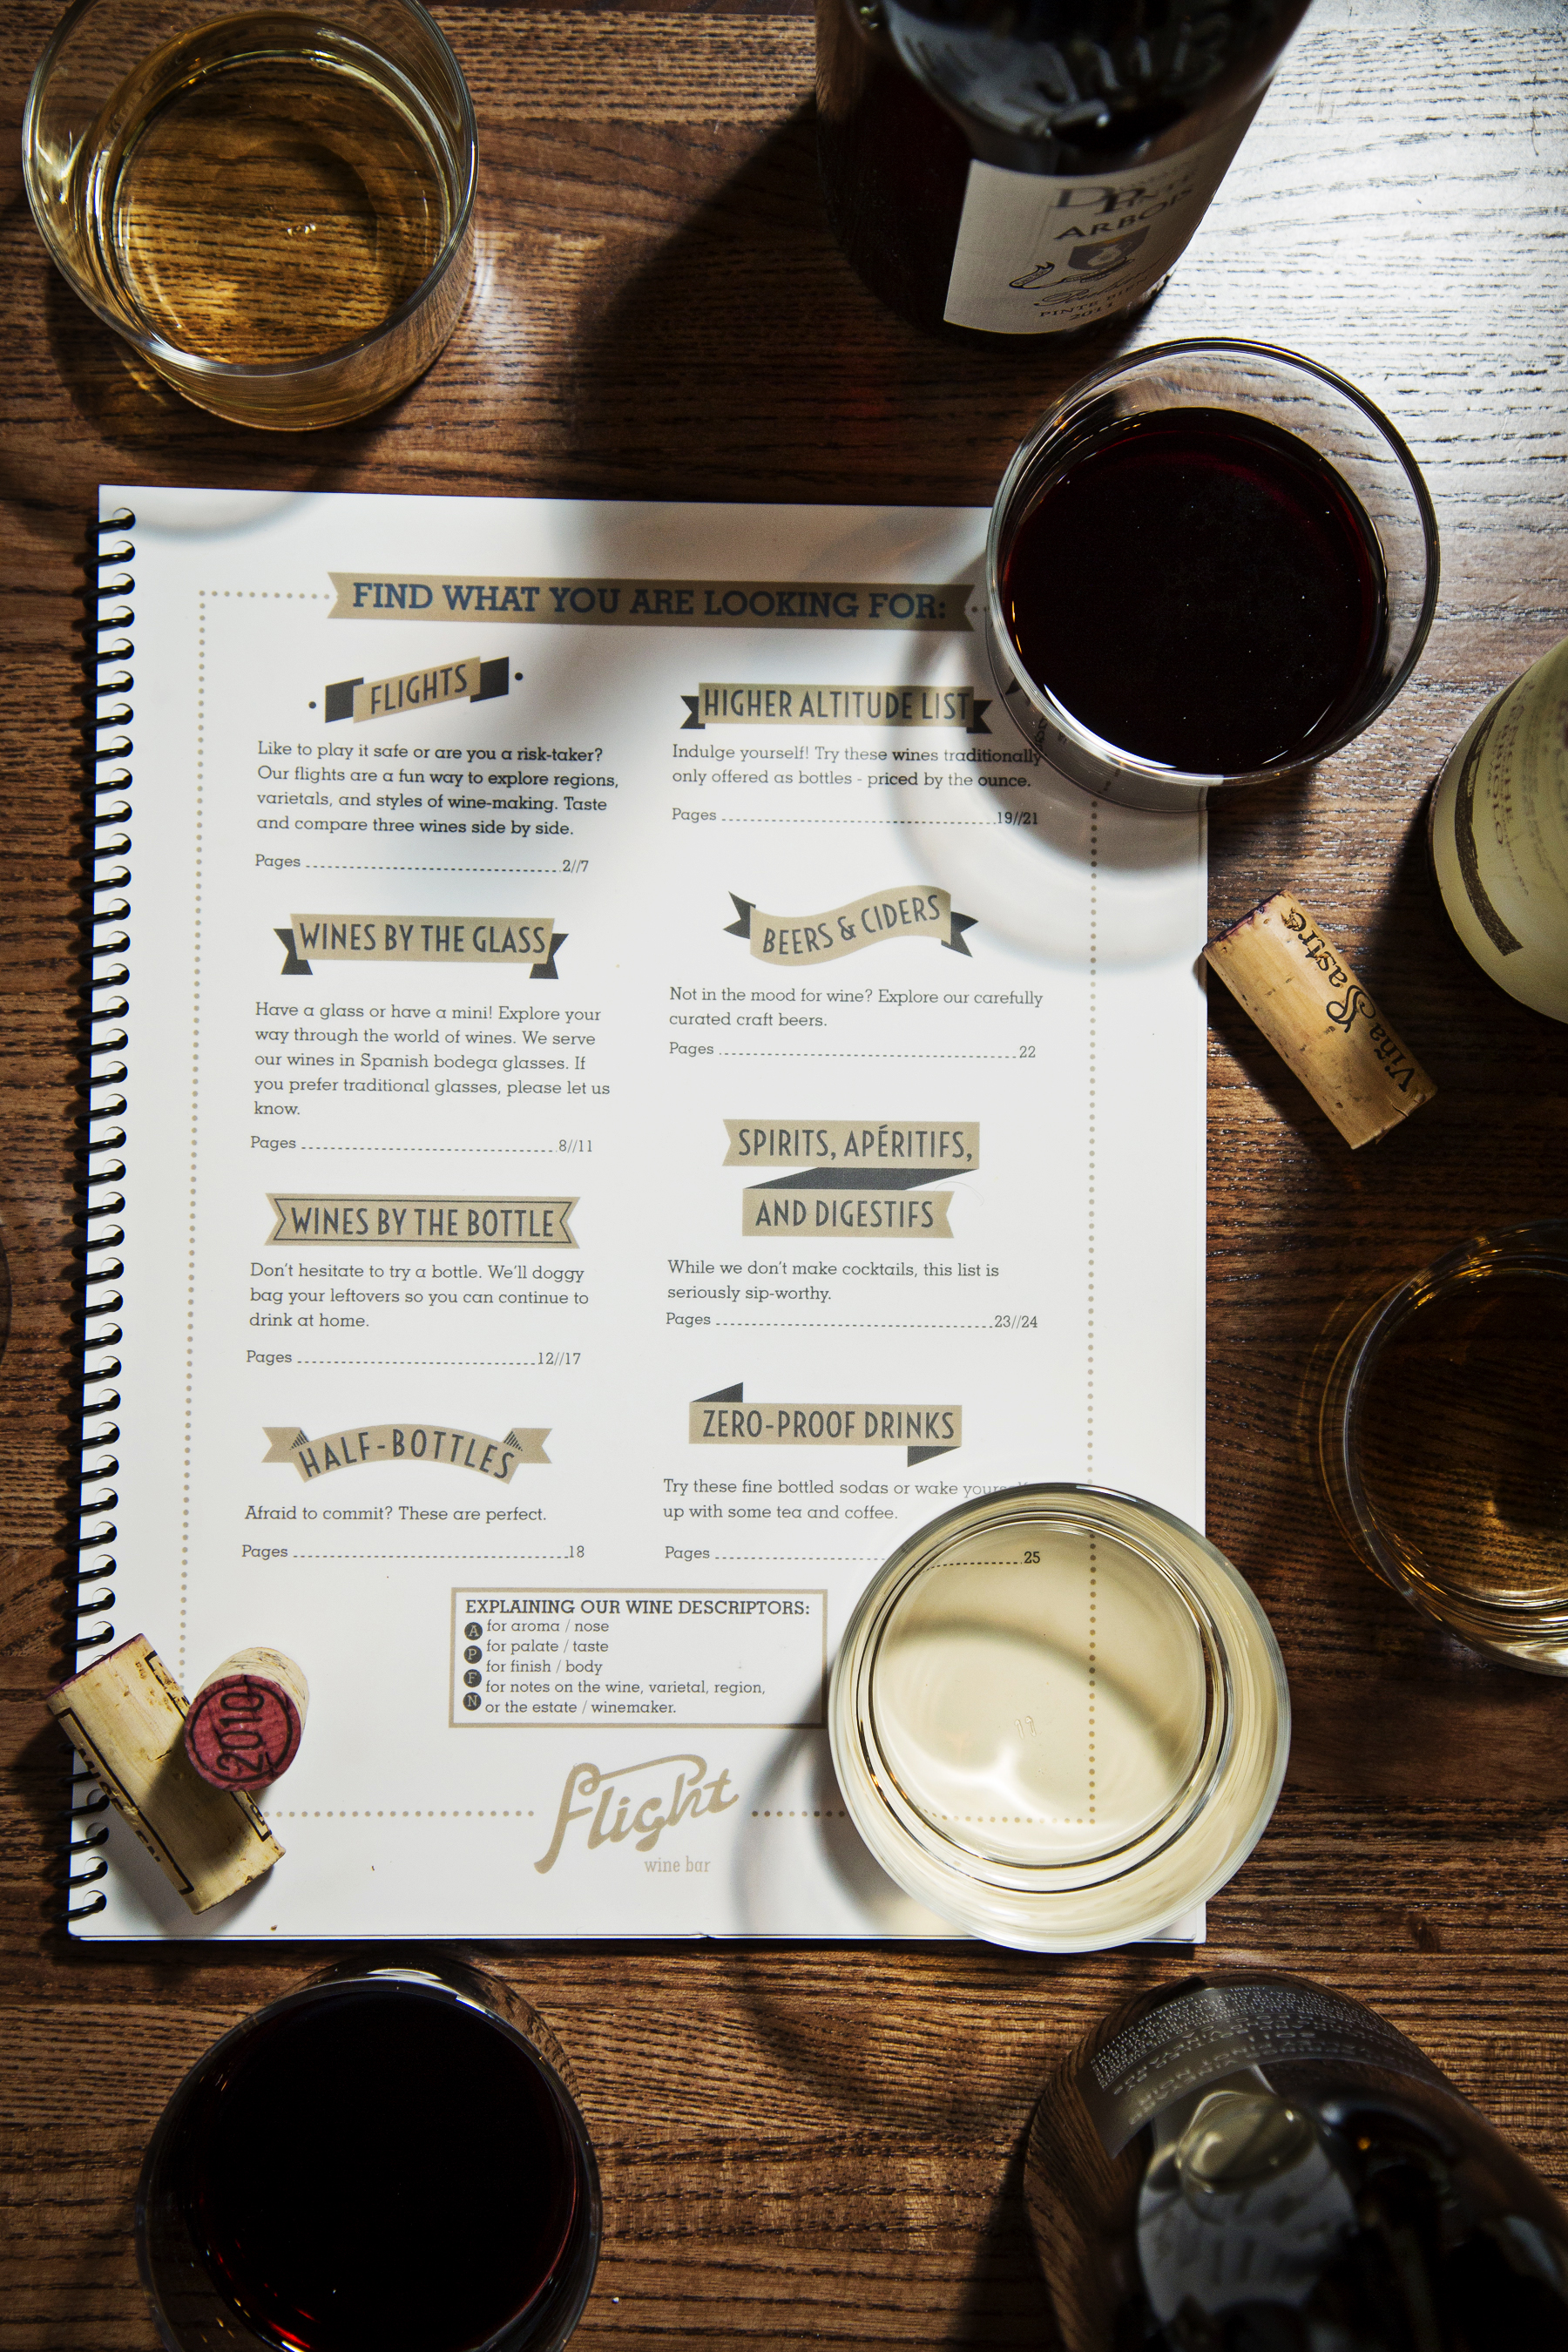 DR
ARBOIS
2011
FIND WHAT YOU ARE LOOKING FOR:
FLIGHTS
Like to play it safe or are you a risk-taker?
Our flights are a fun way to explore regions,
varietals, and styles of wine-making. Taste
and compare three wines side by side.
Pages ........................................ 2//7
WINES BY THE GLASS
Have a glass or have a mini! Explore your
way through the world of wines. We serve
our wines in Spanish bodega glasses. If
you prefer traditional glasses, please let us
know.
Pages ........................................ 8//11
WINES BY THE BOTTLE
Don't hesitate to try a bottle. We'll doggy
bag your leftovers so you can continue to
drink at home.
Pages ........................................ 12//17
HALF-BOTTLES
Afraid to commit? These are perfect.
Pages ........................................ 18
HIGHER ALTITUDE LIST
Indulge yourself! Try these wines traditionally
only offered as bottles - priced by the ounce.
Pages ........................................ 19//21
BEERS & CIDERS
Not in the mood for wine? Explore our carefully
curated craft beers.
Pages ........................................ 22
SPIRITS, APÉRITIFS,
AND DIGESTIFS
While we don't make cocktails, this list is
seriously sip-worthy.
Pages ........................................ 23//24
ZERO-PROOF DRINKS
Try these fine bottled sodas or wake yourself
up with some tea and coffee.
Pages ........................................ 25
EXPLAINING OUR WINE DESCRIPTORS:
A for aroma / nose
P for palate / taste
F for finish / body
N for notes on the wine, varietal, region,
or the estate / winemaker.
flight
wine bar
Viña Sastre
2010